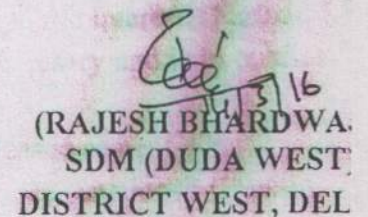 14/3/16
(RAJESH BHARDWA.
SDM (DUDA WEST
DISTRICT WEST, DEL